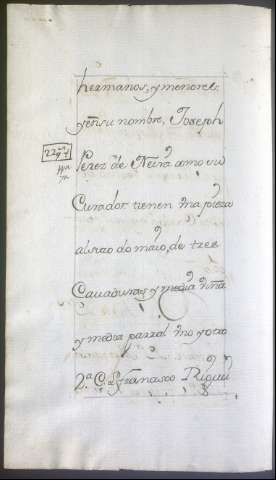 hermanos, y menores
y en su nombre, Joseph
Perez de Neira como su
Curador tienen una pieza
al sitio do maio, de tres
Cavaduras y media una
y media parral uno y otro
2.ª C. Franasco Rigueir